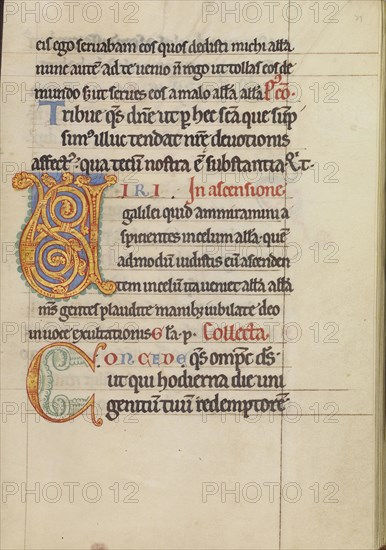 eis ego seruabam eos quos dedisti michi alła.
nunc autē ad te uenio n̄ rogo ut tollas eos de
mundo s; ut serues eos a malo alła. alła. P̄ cō.
Tribue qs̄ dñe ut p̄ hec scā que sūp
simꝰ illuc tendat nr̄e deuotionis
affectꝰ: qua tecū nostra ē substantia. P̄ t.
VIRI. In ascensione
galilei quid ammiramini a
spicientes in celum alła. quē
admodū uidistis eū ascenden
tem in celū ita ueniet alła. alła
m̄s gentes plaudite manibꝫ iubilate deo
in uoce exultationis Gła. p. Collecta.
CONCEDE qs̄ omp̄c ds̄.
ut qui hodierna die uni
genitū tuū redemptorē
PHOTO 12